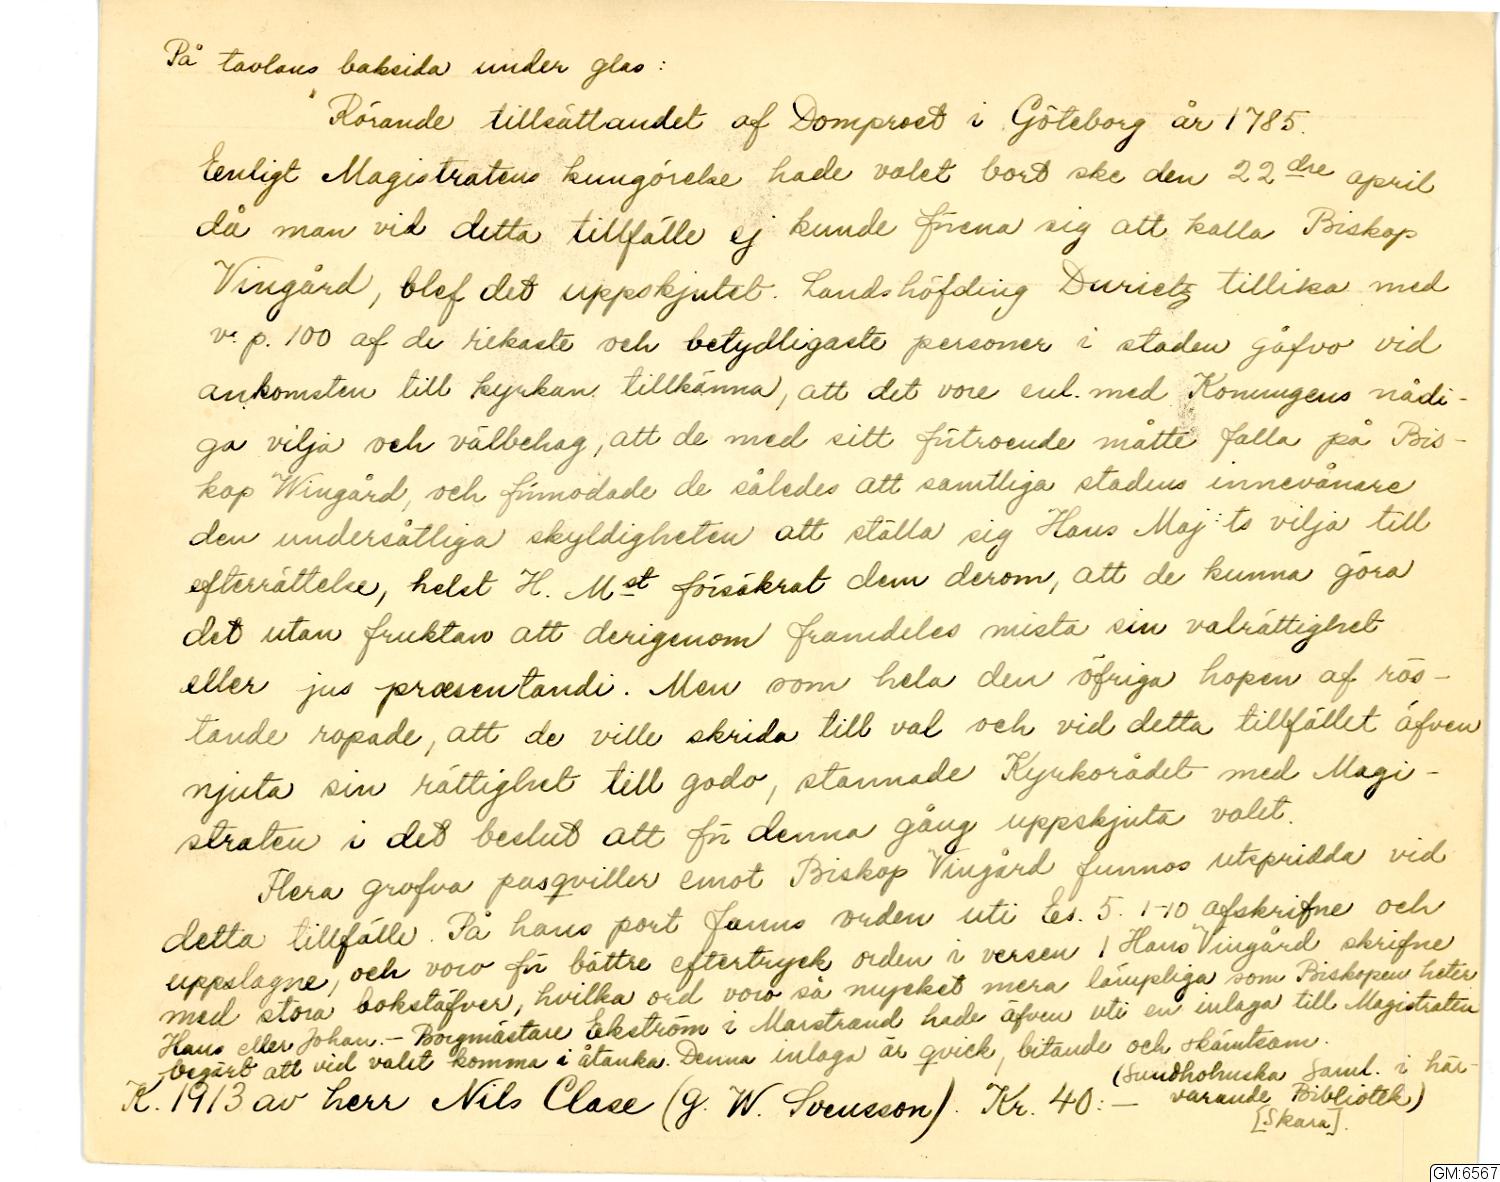 På tavlans baksida under glas:
"Rörande tillsättandet af Domprost i Göteborg år 1785.
Eenligt Magistratens kungörelse hade valet bort ske den 22dre april
då man vid detta tillfälle ej kunde förena sig att kalla Biskop
Vingård, blef det uppskjutet. Landshöfding Durietz tillika med
v. p. 100 af de rikaste och betydligaste personer i staden gåfvo vid
ankomsten till kyrkan tillkänna, att det vore enl. med Konungens nådi-
ga vilja och välbehag, att de med sitt förtroende måtte falla på Bis-
kop Wingård, och förmodade de således att samtliga stadens innevånare
den undersåtliga skyldigheten att ställa sig Hans Maj:ts vilja till
efterrättelse, helst H. Mst försäkrat dem derom, att de kunna göra
det utan fruktan att derigenom framdeles mista sin valrättighet
eller jus præsentandi. Men som hela den öfriga hopen af rös-
tande ropade, att de ville skrida till val och vid detta tillfället äfven
njuta sin rättighet till godo, stannade Kyrkorådet med Magi-
straten i det beslut att för denna gång uppskjuta valet.
Flera grofva pasqviller emot Biskop Vingård funnos utspridda vid
detta tillfälle. På hans port fanns orden uti Es. 5. 1-10 afskrifne och
uppslagne, och voro för bättre eftertryck orden i versen 1 Hans Vingård skrifne
med stora bokstäfver, hvilka ord voro så mycket mera lämpliga som Biskopen heter
Hans eller Johan. - Borgmästare Ekström i Marstrand hade äfven uti en inlaga till Magistraten
begärt att vid valet komma i åtanka. Denna inlaga är qvick, bitande och skämtsam.
(Sundholmska Saml. i här-
K. 1913 av herr Nils Clase (g. W. Svensson). Kr. 40:- varande Bibliotek)
[Skara].
GM:6567